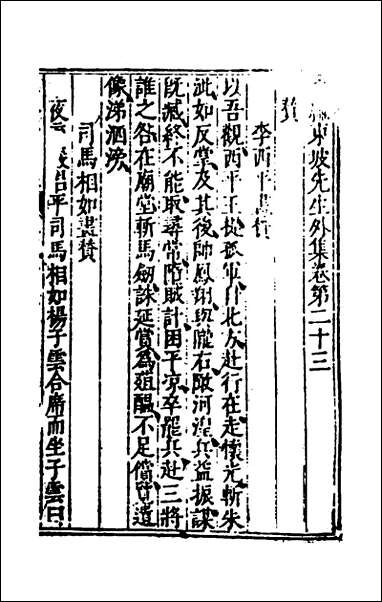 東坡先生外集卷第二十三
贊
李西平畫贊
以吾觀西平王提孤軍自北方赴行在走懷光斬朱
泚如反掌及其後帥鳳翔與隴右隃河湟兵益振謀
既臧終不能取尋常隋賊計困平涼卒罷兵赴三將
誰之咎在廟堂斬馬劒誅延賞為葅醢不足償覽遺
像涕泗滂
司馬相如畫贊
夜夢呂平司馬相如楊子雲合席而坐子雲曰